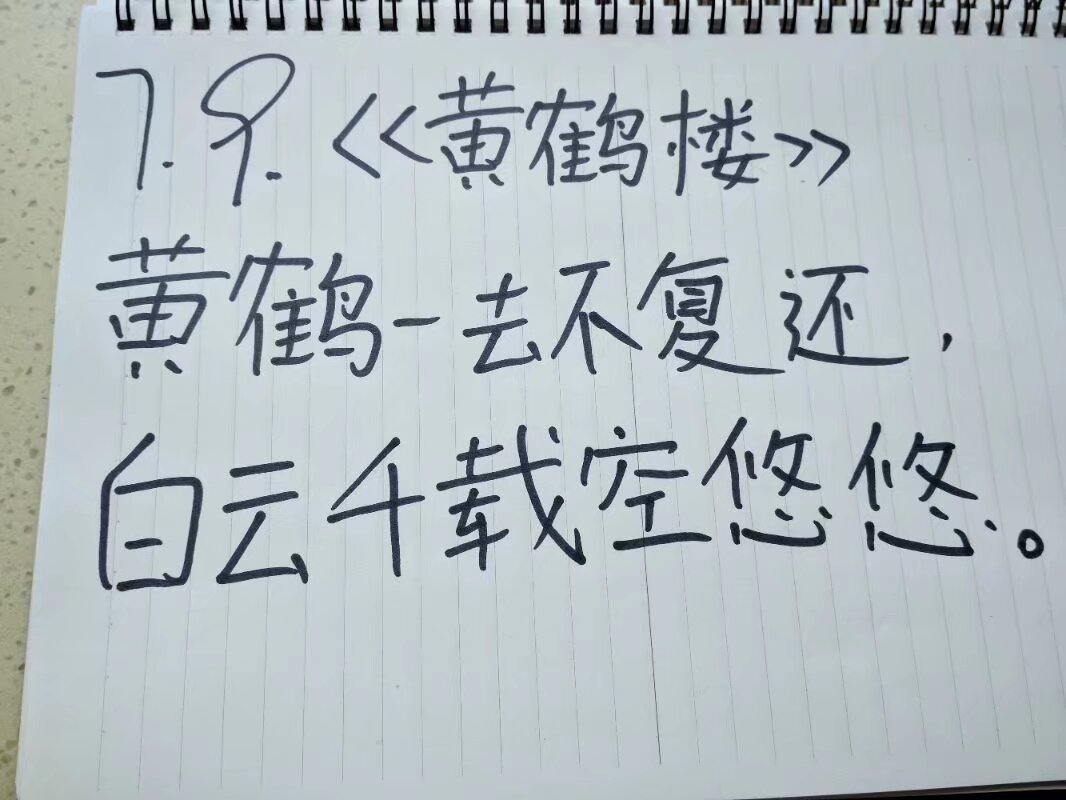 7.9.《黄鹤楼》
黄鹤一去不复还，
白云千载空悠悠。